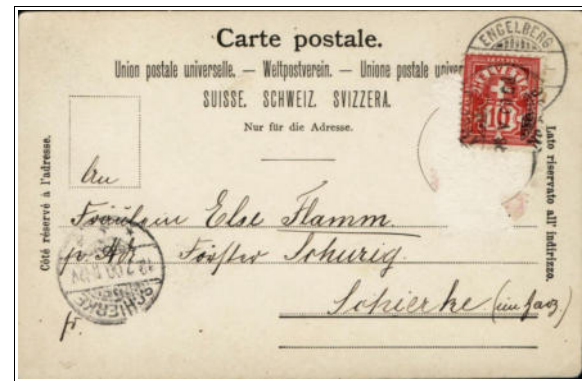 Carte postale.
Union postale universelle. — Weltpostverein. — Unione postale univer
SUISSE. SCHWEIZ. SVIZZERA.
Nur für die Adresse.
ENGELBERG
HELVETIA
10
Côté réservé à l'adresse.
Lato riservato all' indirizzo.
An
Fräulein Else Flamm.
p. Adr. Förster Schurig.
Schierke (im Harz.)
fr.
SCHIERKE